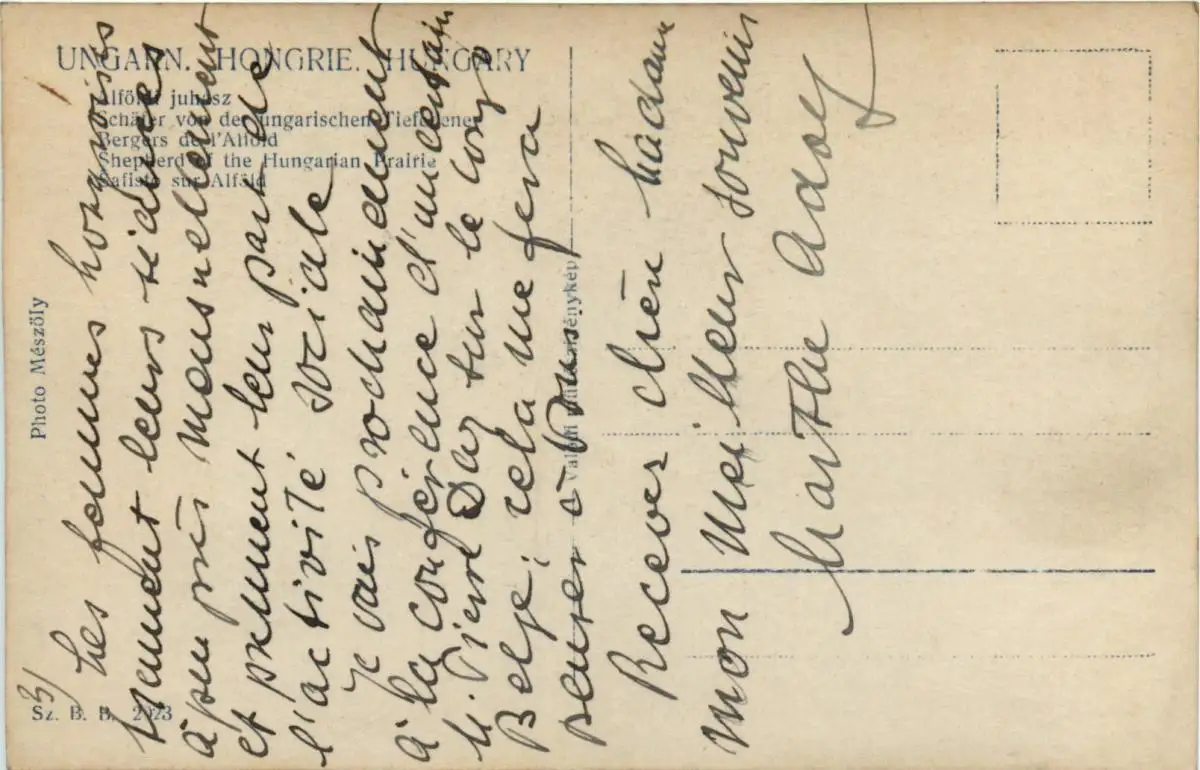 UNGARN. HONGRIE. HUNGARY
Alföldi juhász
Schäfer von der ungarischen Tiefebene
Bergers de l'Alföld
Shepherd of the Hungarian Prairie
Safisto sur Alföld
Photo Mészöly
Sz. B. B. 2023
Valódi
3/
Les femmes hongroises
tiennent leurs séances
à peu près mensuellement
et prennent leur part de
l'activité sociale
Je vais prochainement
à la conférence d'un certain
M. Pierre sur le Congo
Belge; cela me fera
penser à vous.
Recevez chère Madame
mon meilleur souvenir
Marthe